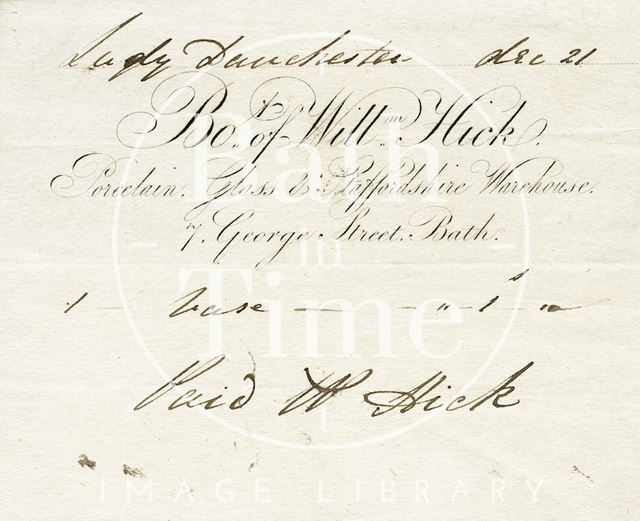 Lady Danchester dec 21
Bot. of Willm. Hick.
Porcelain. Glass & Staffordshire Warehouse.
7. George Street. Bath.
1 — Vase — — " 1s "
Paid W Hick
Bath
in
Time
IMAGE LIBRARY